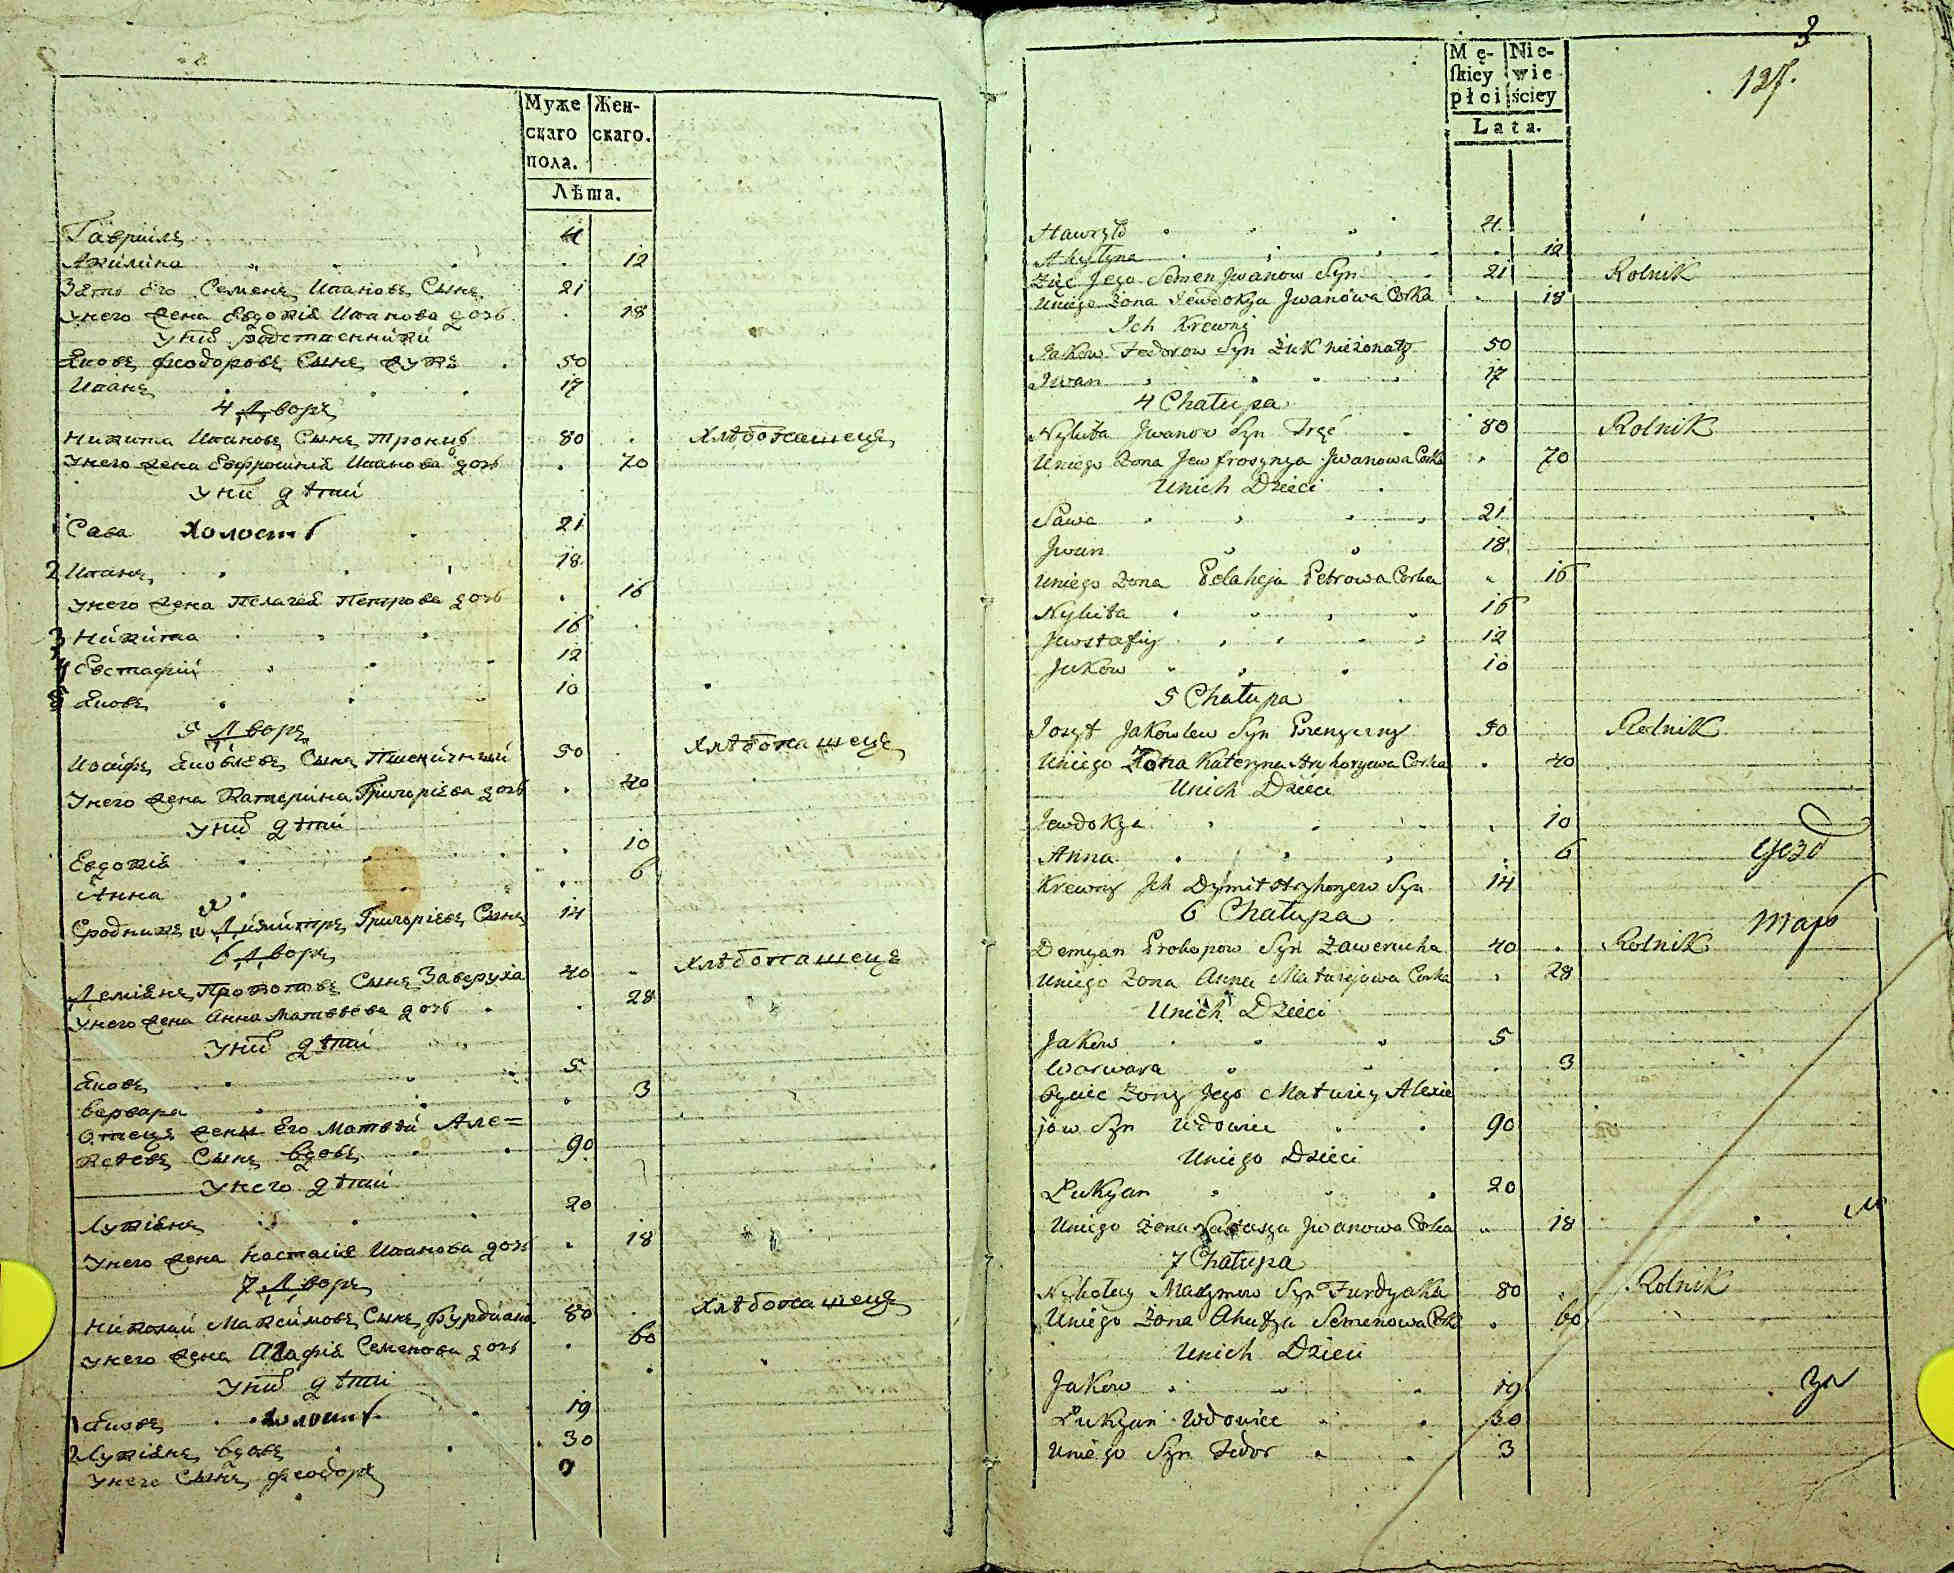 Муже Жен-
скаго скаго.
пола.
Лѣта.
Гавриилъ 4
Акилина 12
Зять Его Семенъ Ивановъ Сынъ 21
Унего жена Евдокія Иванова дочь 18
Унихъ родственники
Яковъ Феодоровъ Сынъ Жукъ 50
Иванъ 17
4 Дворъ
Никита Ивановъ Сынъ 80 Хлѣбопашецъ
Унего жена Евфросинія Иванова дочь 70
Унихъ дѣти
1 Сава Холостъ 21
2 Иванъ 18
Унего жена Пелагея Петрова дочь 16
3 Никита 16
4 Евстафій 12
5 Яковъ 10
5 Дворъ
Иосифъ Яковлевъ Сынъ Пшеничный 50 Хлѣбопашецъ
Унего жена Катерина Григоріева дочь 40
Унихъ дѣти
Евдокія 10
Анна 6
Сродникъ Димитръ Григоріевъ Сынъ 14
6 Дворъ
Деміянъ Прокоповъ Сынъ Заверуха 40 Хлѣбопашецъ
Унего жена Анна Матвѣева дочь 28
Унихъ дѣти
Яковъ 5
Варвара 3
Отецъ жены Его Матвѣй Але=
ксѣевъ Сынъ вдовъ 90
Унего дѣти
Лукіянъ 20
Унего жена Настасія Иванова дочь 18
7 Дворъ
Николай Максимовъ Сынъ Фурдиака 80 Хлѣбопашецъ
Унего жена Агафія Семенова дочь 60
Унихъ дѣти
1 Яковъ холостъ 19
2 Лукіянъ вдовъ 30
Унего Сынъ Феодоръ
3
Mę- Nie-
skiey wie
płci ściey
Lata.
Hawryło 4
Akylyna 12
Zięć Jego Semen Jwanow Syn 21 Rolnik
Uniego Zona Jewdokya Jwanowa Corka 18
Jch Krewni
Jakow Fedorow Syn Żuk nieżonaty 50
Jwan 17
4 Chałupa
Nykita Jwanow Syn 80 Rolnik
Uniego Zona Jewfrosynya Jwanowa Corka 70
Unich Dzieci
Sawa 21
Jwan 18
Uniego Zona Pelaheja Petrowa Corka 16
Nykita 16
Jewstafiy 12
Jakow 10
5 Chałupa
Jozyf Jakowlew Syn Pszenyczny 50 Rolnik
Uniego Zona Kateryna Hryhoryewa Corka 40
Unich Dzieci
Jewdokya 10
Anna 6
Krewny Jch Dymitr Hryhoryew Syn 14
6 Chałupa
Demyan Prokopow Syn Zawerucha 40 Rolnik
Uniego Zona Anna Matwiejowa Corka 28
Unich Dzieci
Jakow 5
Warwara 3
Oyciec Zony Jego Matwiey Alexie
jow Syn Wdowiec 90
Uniego Dzieci
Łukyan 20
Uniego Zona Jwanowa Corka 18
7 Chałupa
Nykołay Maxymow Syn Furdyaka 80 Rolnik
Uniego Zona Ahafya Semenowa Corka 60
Unich Dzieci
Jakow 19
Łukyan Wdowiec 30
Uniego Syn Fedor 3